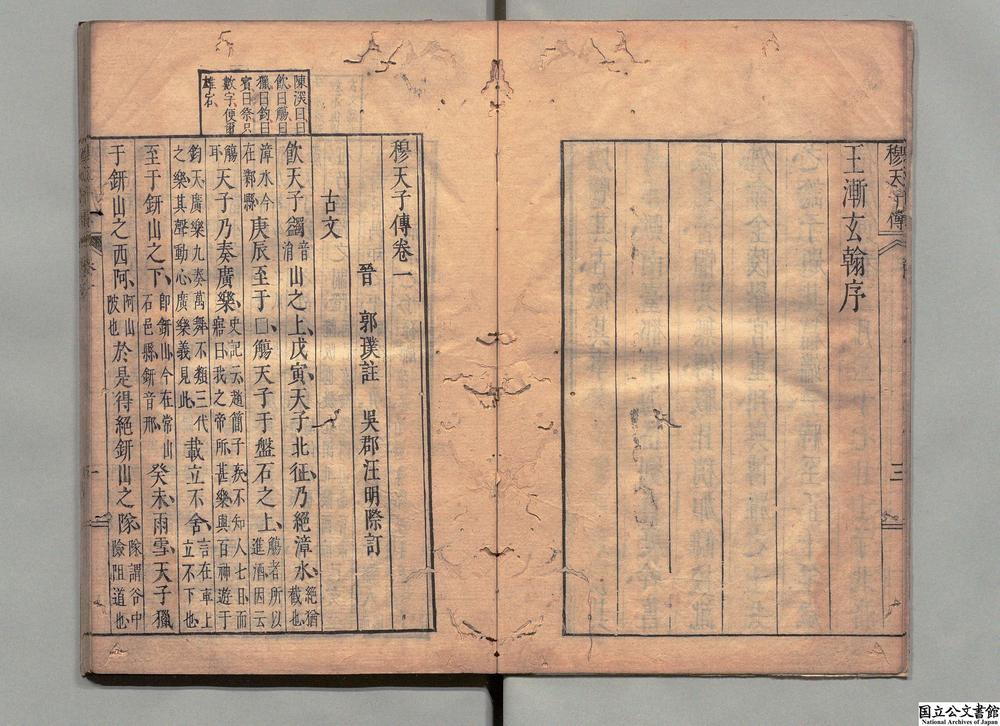 穆天子傳
三
王漸玄翰序
穆天子傳卷一
晉 郭璞註 吳郡汪明際訂
古文
陳深曰曰
飲曰觴曰
獵曰釣曰
賓曰祭只
數字便爾
雄古
飲天子蠲音涓山之上、戊寅天子北征乃絕漳水、絕猶截也
漳水今在鄴縣庚辰至于□、觴天子于盤石之上、觴者所以進酒因云
觴耳天子乃奏廣樂、史記云趙簡子疾不知人七日而寤曰我之帝所甚樂與百神遊于
鈞天廣樂九奏萬舞不類三代之樂其聲動心廣樂義見此載立不舍、言在車上立不下也
至于鈃山之下、即鈃山今在常山石邑縣鈃音邢癸未雨雪、天子獵
于鈃山之西阿、阿山陂也於是得絕鈃山之隊、隊謂谷中險阻道也
国立公文書館
National Archives of Japan